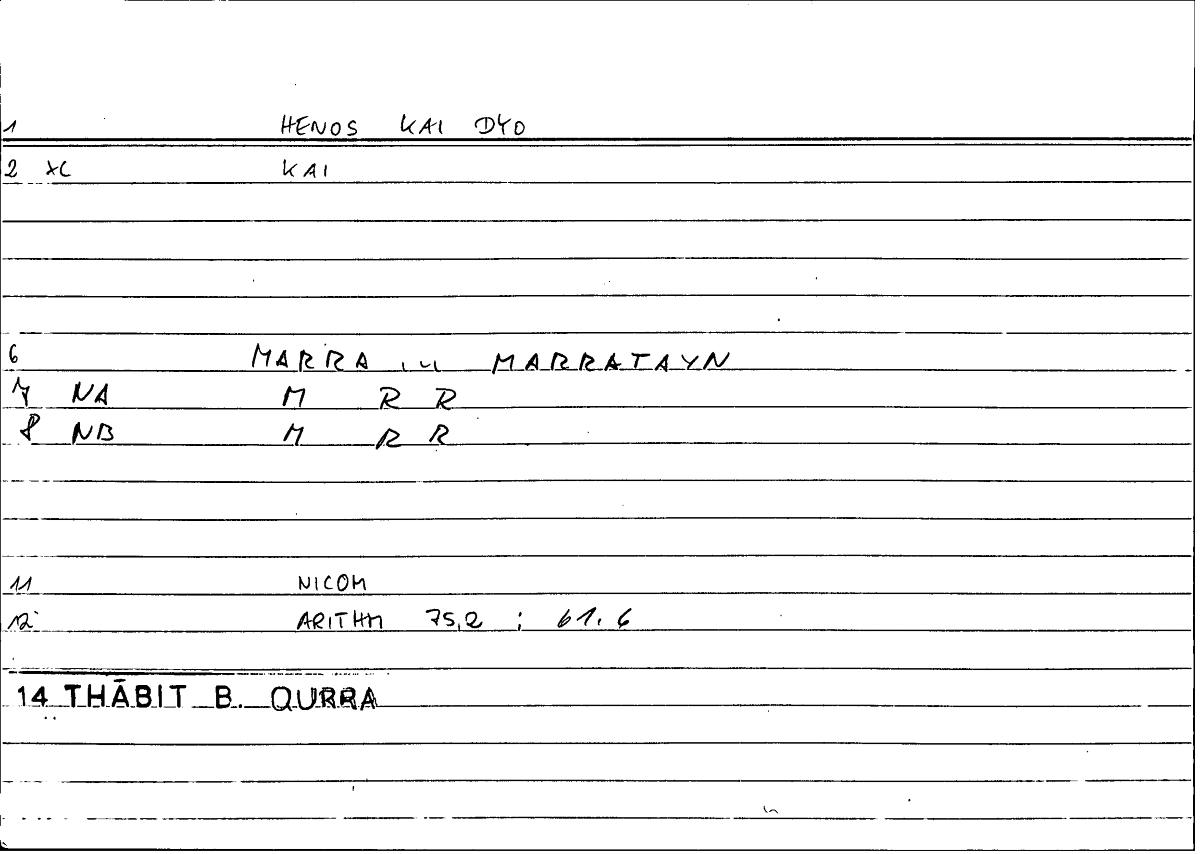 1 HENOS KAI DYO
2 XC KAI
6 MARRA MARRATAYN
7 NA M R R
8 NB M R R
11 NICOM
12 ARITHM 75,2 ; 61.6
14 THĀBIT B. QURRA